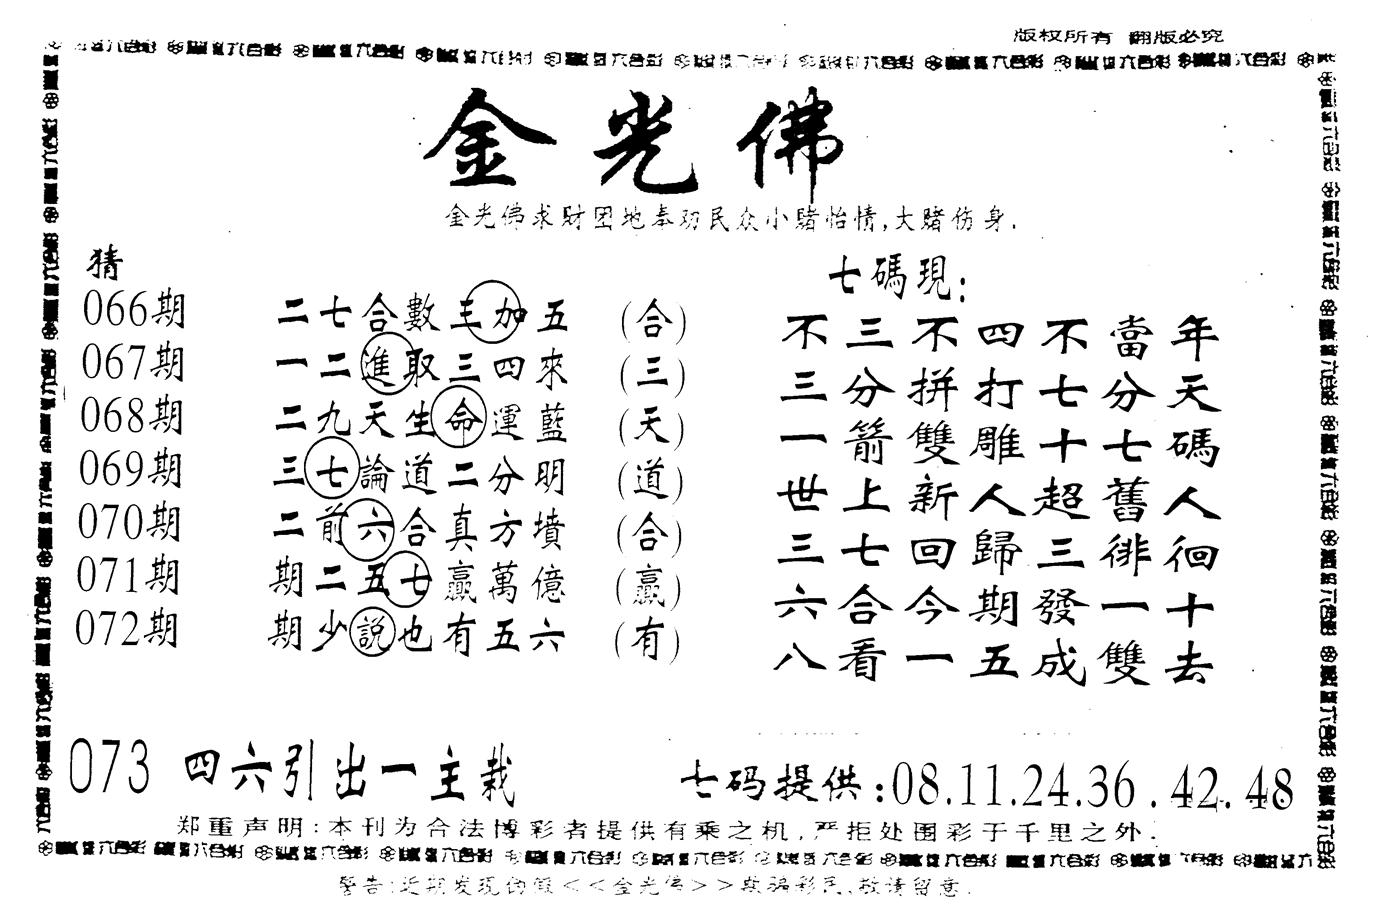 版权所有 翻版必究
金光佛
金光佛求财团地奉劝民众小赌怡情,大赌伤身.
猜
066期 二七合數三加五 (合)
067期 一二進取三四來 (三)
068期 二九天生命運藍 (天)
069期 三七論道二分明 (道)
070期 二前六合真方墳 (合)
071期 期二五七贏萬億 (贏)
072期 期少説也有五六 (有)
七碼現:
不三不四不當年
三分拼打七分天
一箭雙雕十七碼
世上新人超舊人
三七回歸三徘徊
六合今期發一十
八看一五成雙去
073 四六引出一主栽
七码提供:08.11.24.36.42.48
郑重声明:本刊为合法博彩者提供有乘之机,严拒处围彩于千里之外.
警告:近期发现伪假<<金光佛>>欺骗彩民,敬请留意.